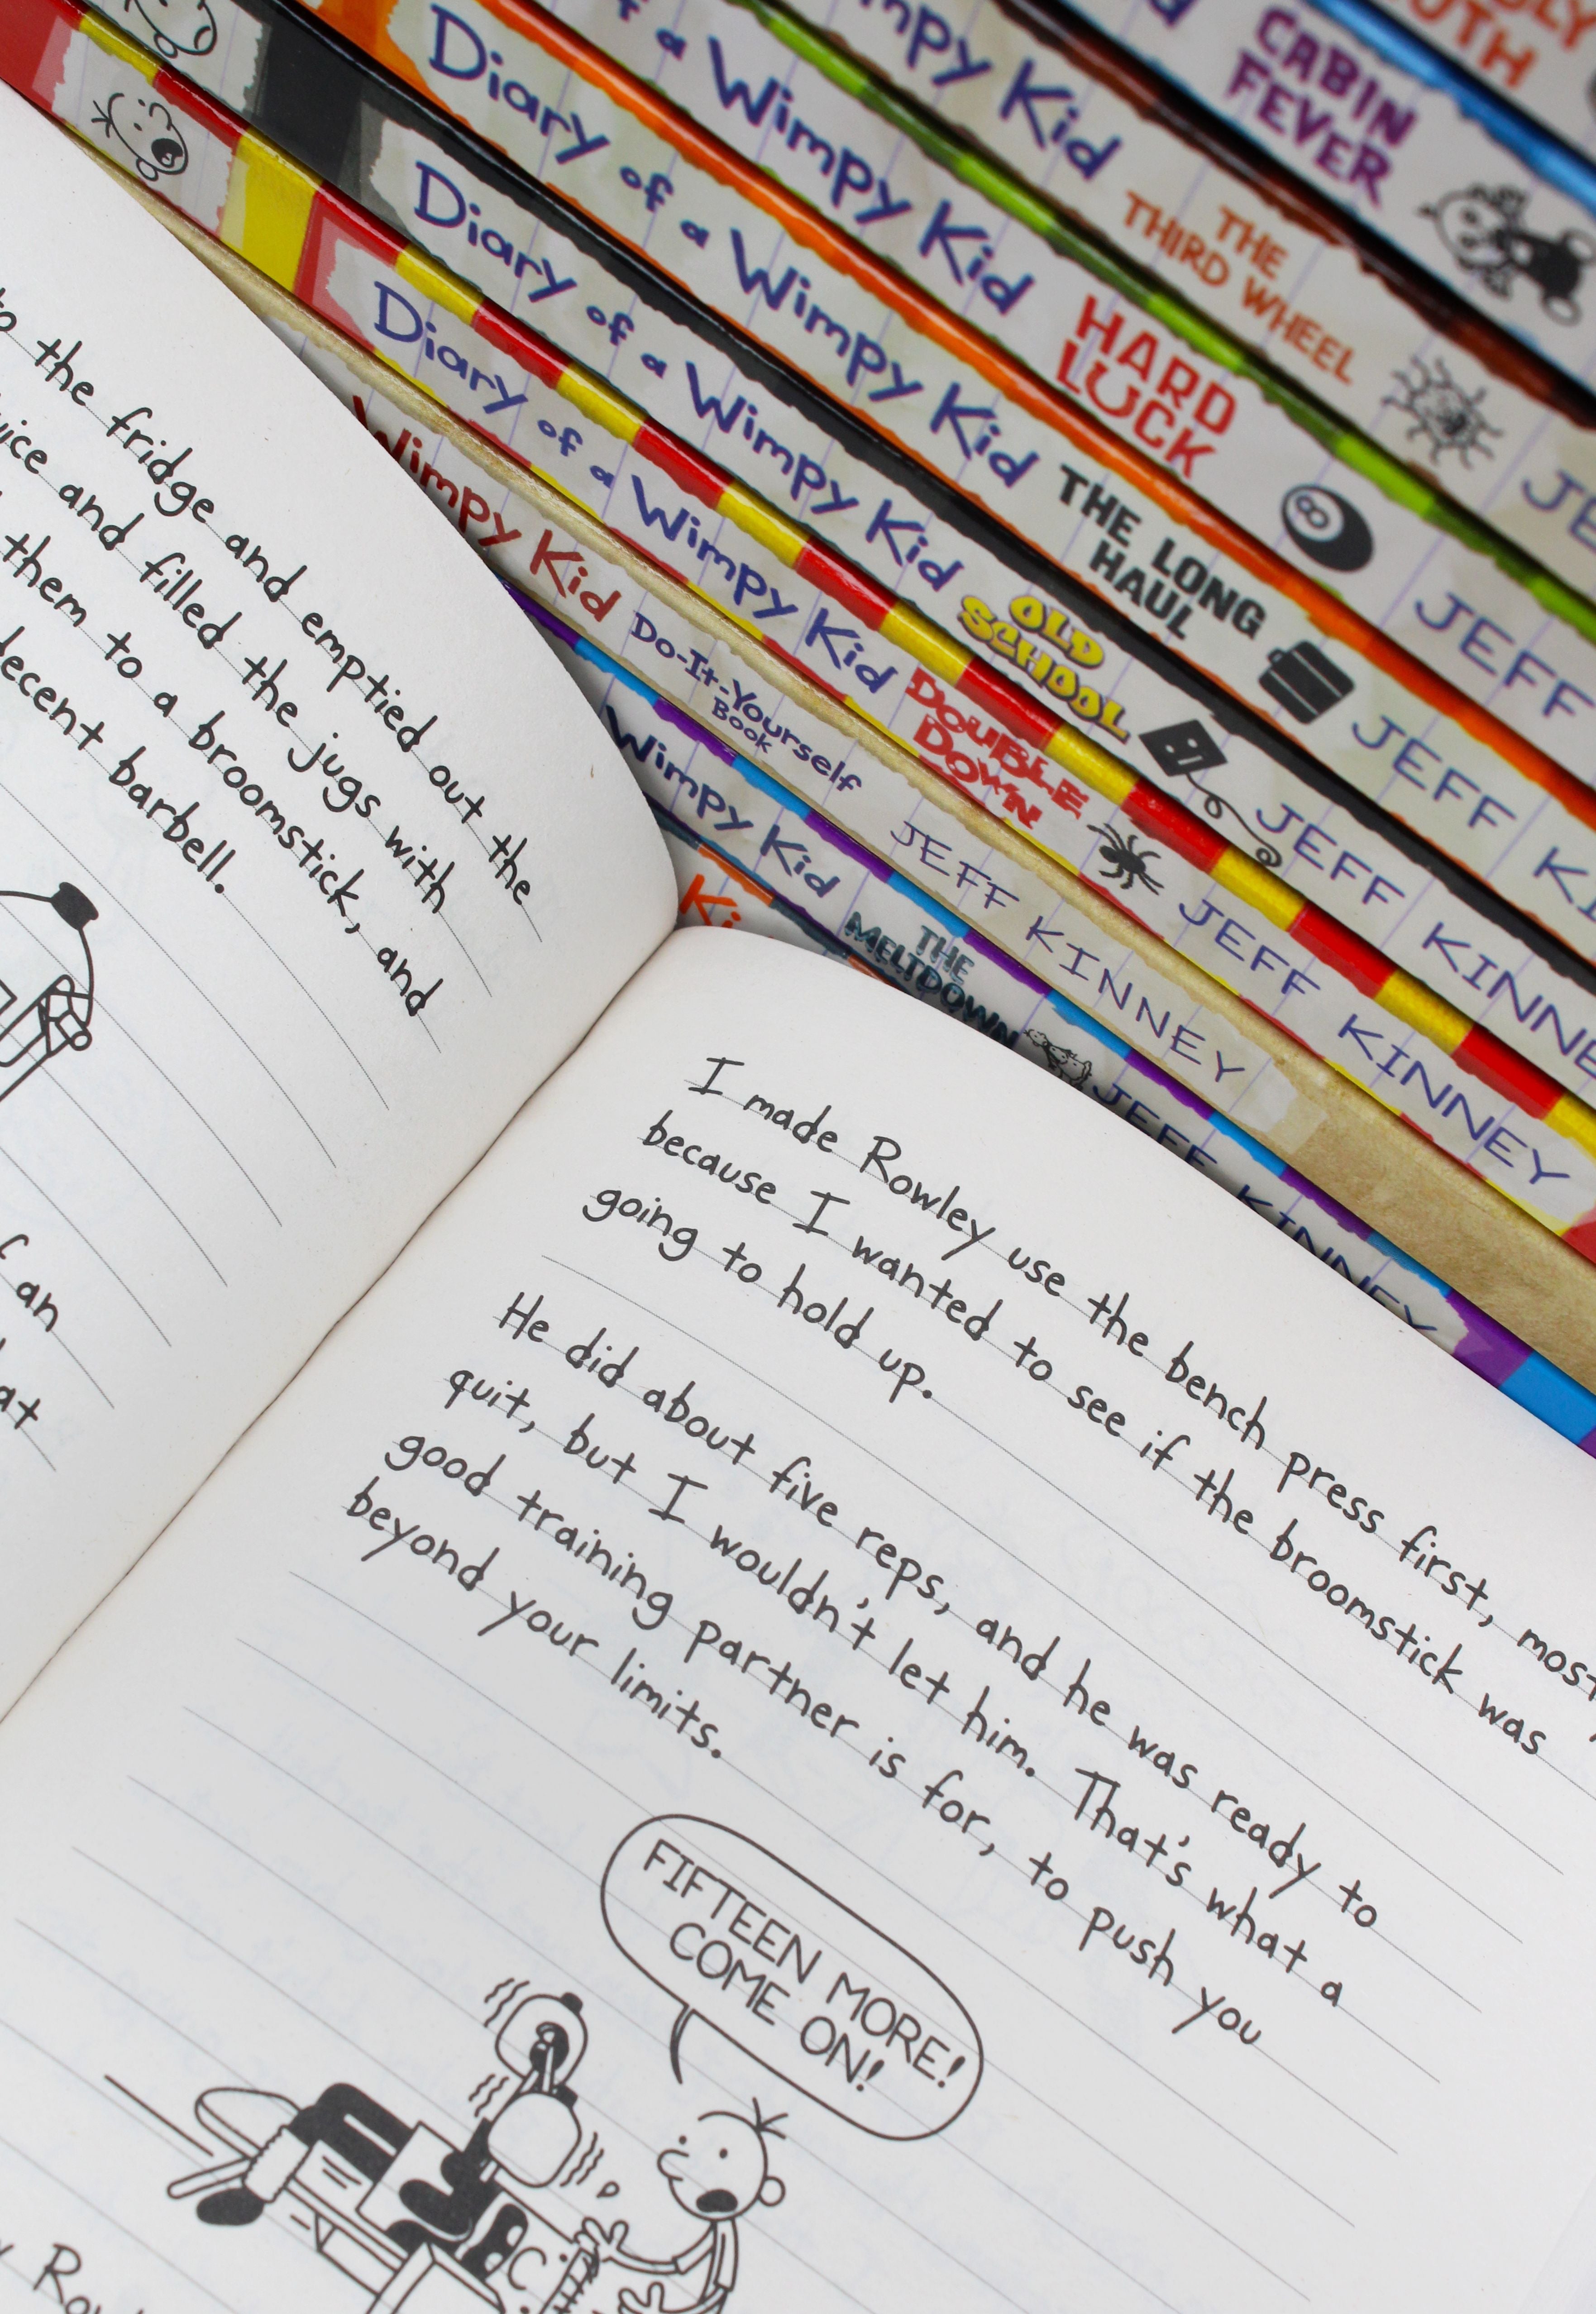 UTH
CABIN
FEVER
mpy Kid
THE
THIRD WHEEL
JE
of a Wimpy Kid
HARD
LUCK
8
JEFF
Diary of a Wimpy Kid
THE LONG
HAUL
JEFF KI
Diary of a Wimpy Kid
OLD
SCHOOL
JEFF KINNE
Diary of a Wimpy Kid
DOUBLE
DOWN
JEFF KINNEY
Wimpy Kid
Do-It-Yourself
Book
JEFF KINNEY
Wimpy Kid
THE
MELTDOWN
JEFF KINNEY
Ki
to the fridge and emptied out the
and filled the jugs with
them to a broomstick, and
decent barbell.
an
at
I made Rowley use the bench press first, most
because I wanted to see if the broomstick was
going to hold up.
He did about five reps, and he was ready to
quit, but I wouldn't let him. That's what a
good training partner is for, to push you
beyond your limits.
FIFTEEN MORE!
COME ON!